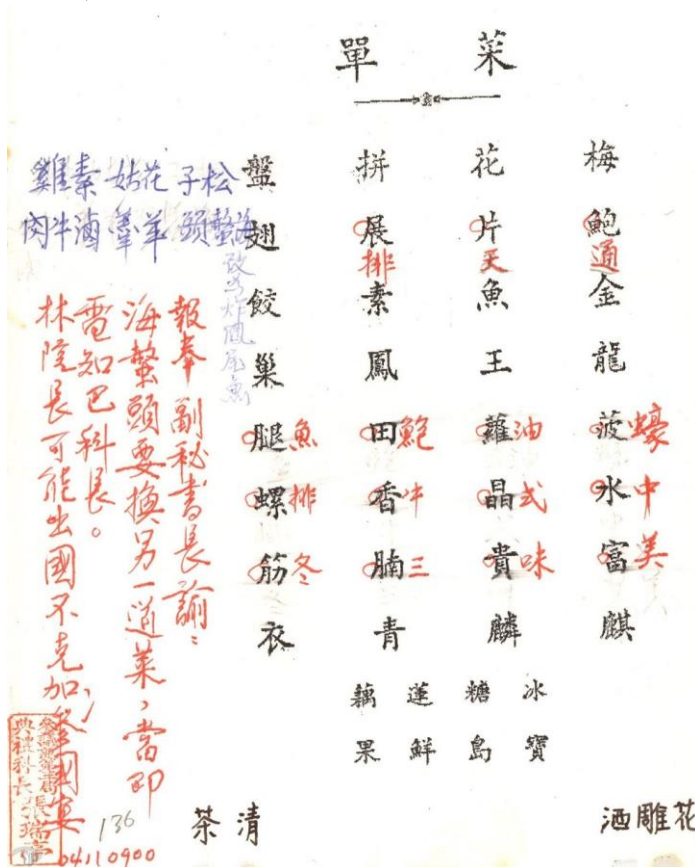 菜單
梅花拼盤
鮑片展翅
通天排
金魚素餃
龍王鳳巢
菠蘿田腿
蠔油鮑魚
水晶香螺
中式牛排
富貴腩筋
美味三冬
麒麟青衣
冰糖蓮藕
寶島鮮果
花雕酒
清茶
松子花姑素雞
海蟄頭羊羹滷牛肉
改為炸鳳尾魚
報奉 副秘書長諭：
海蟄頭要換另一道菜，當即
電知巴科長。
林院長可能出國不克加參國宴
典禮科長張瑞
136
04110900